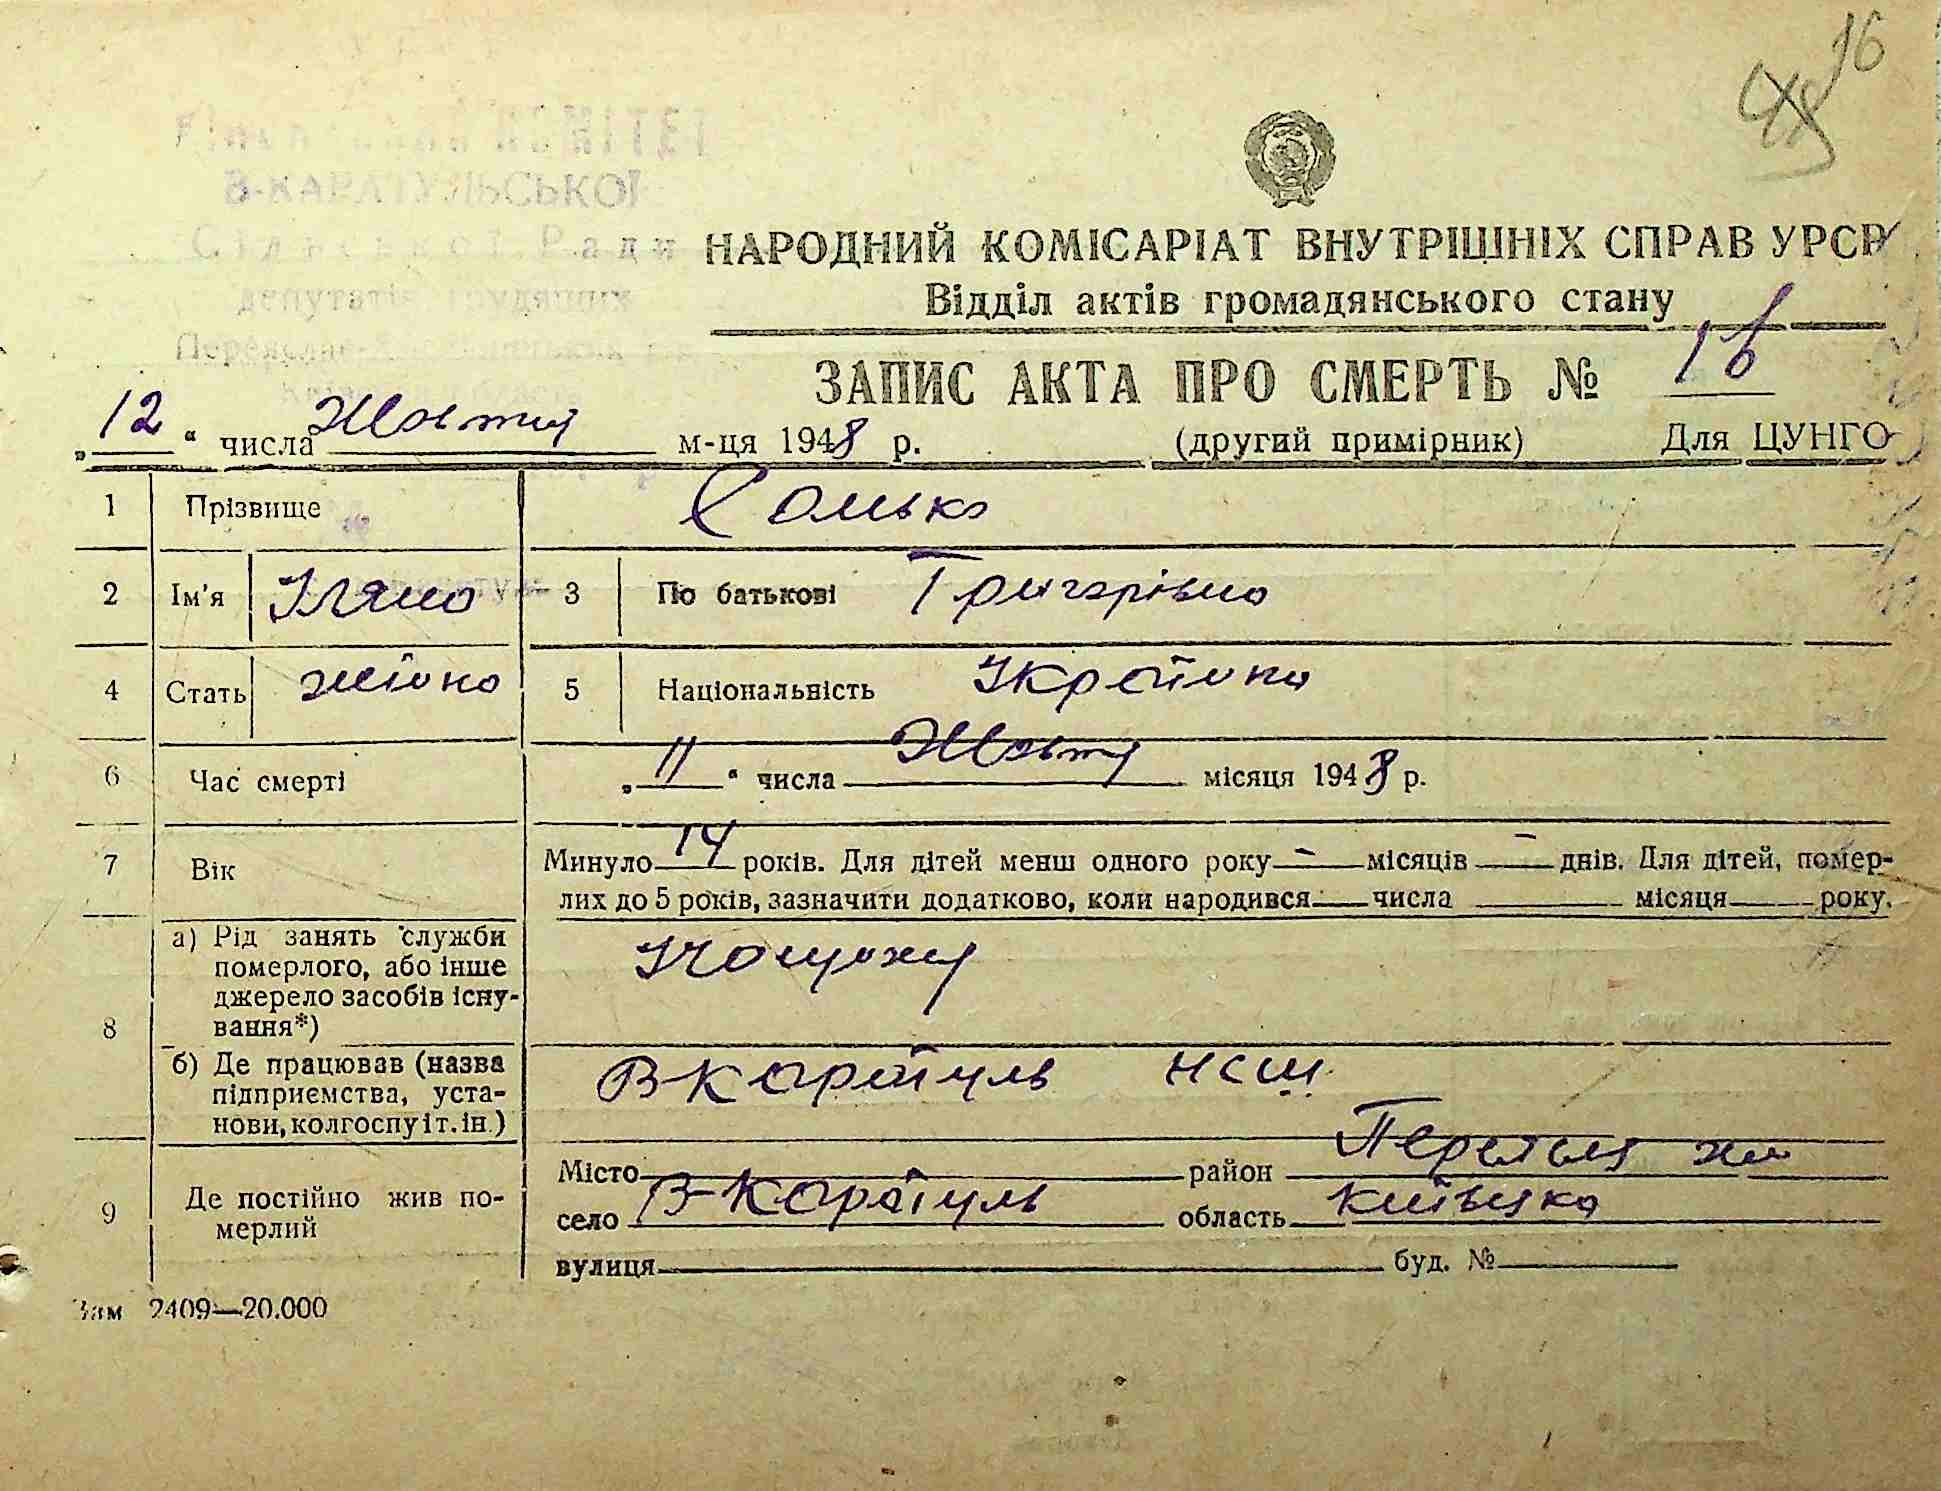 16
КОМІТЕТ
В-КАРАТУЛЬСЬКОЇ
Сільської Ради
депутатів трудящих
НАРОДНИЙ КОМІСАРІАТ ВНУТРІШНІХ СПРАВ УРСР
Відділ актів громадянського стану
ЗАПИС АКТА ПРО СМЕРТЬ № 16
„12“ числа Жовтня м-ця 1948 р. (другий примірник) Для ЦУНГО
1 Прізвище Сомько
2 Ім'я Уляна 3 По батькові Григорівна
4 Стать жінка 5 Національність Українка
6 Час смерті „11“ числа Жовтня місяця 1948 р.
7 Вік Минуло 14 років. Для дітей менш одного року - місяців - днів. Для дітей, помер-
лих до 5 років, зазначити додатково, коли народився числа місяця року.
8 а) Рід занять служби
померлого, або інше
джерело засобів існу-
вання*)
б) Де працював (назва
підприємства, уста-
нови, колгоспу і т. ін.)
В Каратуль НСШ
9 Де постійно жив по-
мерлий
Місто район
село В-Каратуль область Київська
вулиця буд. №
Зам 2409—20.000